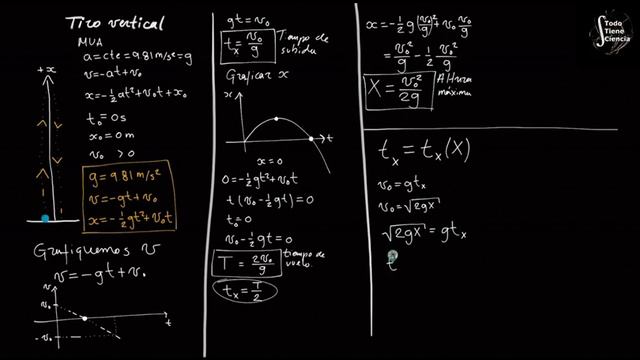 Tiro vertical
MUA
a=cte=9.81m/s²=g
v=-at+v₀
x=-½at²+v₀t+x₀
t₀=0s
x₀=0m
v₀ >0
+x
g=9.81m/s²
v=-gt+v₀
x=-½gt²+v₀t
Grafiquemos v
v=-gt+v₀
v
v₀
-v₀
t
gt=v₀
tₓ=v₀/g
Tiempo de
subida
Graficar x
x
t
x=0
0=-½gt²+v₀t
t(v₀-½gt)=0
t₀=0
v₀-½gt=0
T=2v₀/g
tiempo de
vuelo.
tₓ=T/2
x=-½g(v₀/g)²+v₀ v₀/g
=v₀²/g-½ v₀²/g
X=v₀²/2g
Altura
máxima
tₓ=tₓ(X)
v₀=gtₓ
v₀=√2gX
√2gX=gtₓ
t
Todo
Tiene
Ciencia